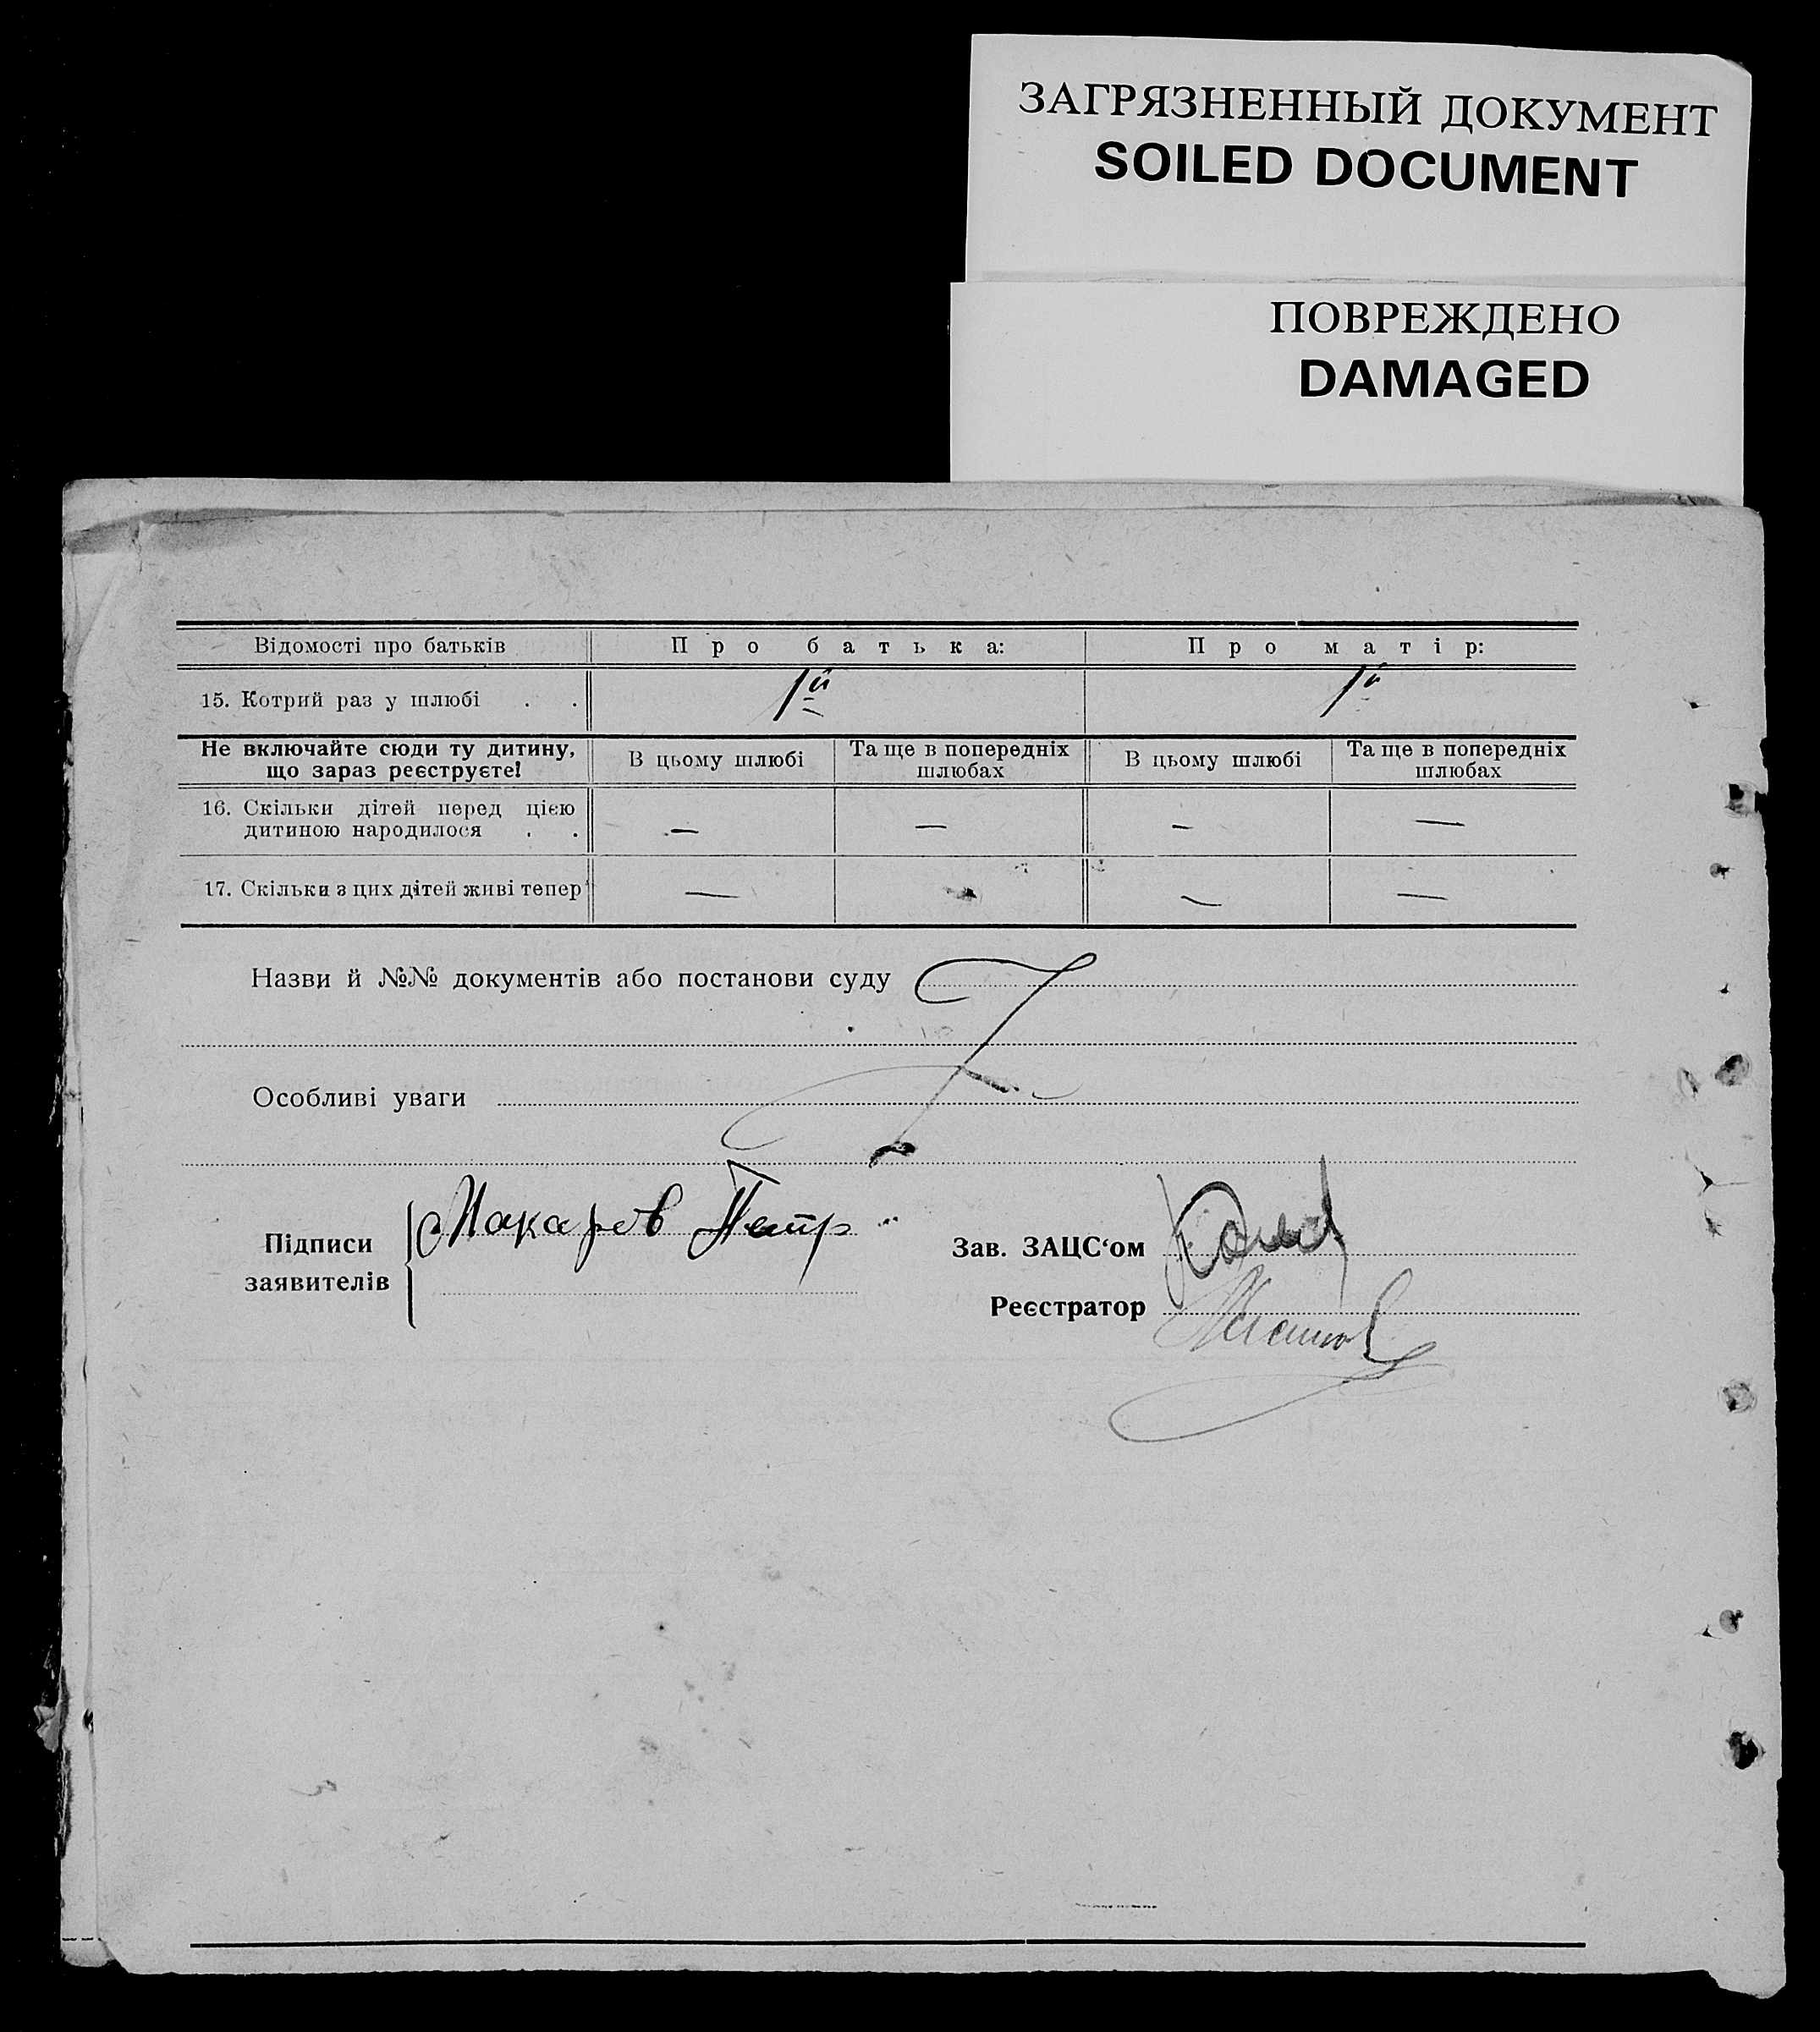 ЗАГРЯЗНЕННЫЙ ДОКУМЕНТ
SOILED DOCUMENT
ПОВРЕЖДЕНО
DAMAGED
Відомості про батьків Про батька: Про матір:
15. Котрий раз у шлюбі . . 1й 1й
Не включайте сюди ту дитину, що зараз реєструєте! В цьому шлюбі Та ще в попередніх шлюбах В цьому шлюбі Та ще в попередніх шлюбах
16. Скільки дітей перед цією
дитиною народилося . . — — — —
17. Скільки з цих дітей живі тепер — — — —
Назви й №№ документів або постанови суду
Особливі уваги
Підписи заявителів Макаров Петр
Зав. ЗАЦС‘ом
Реєстратор